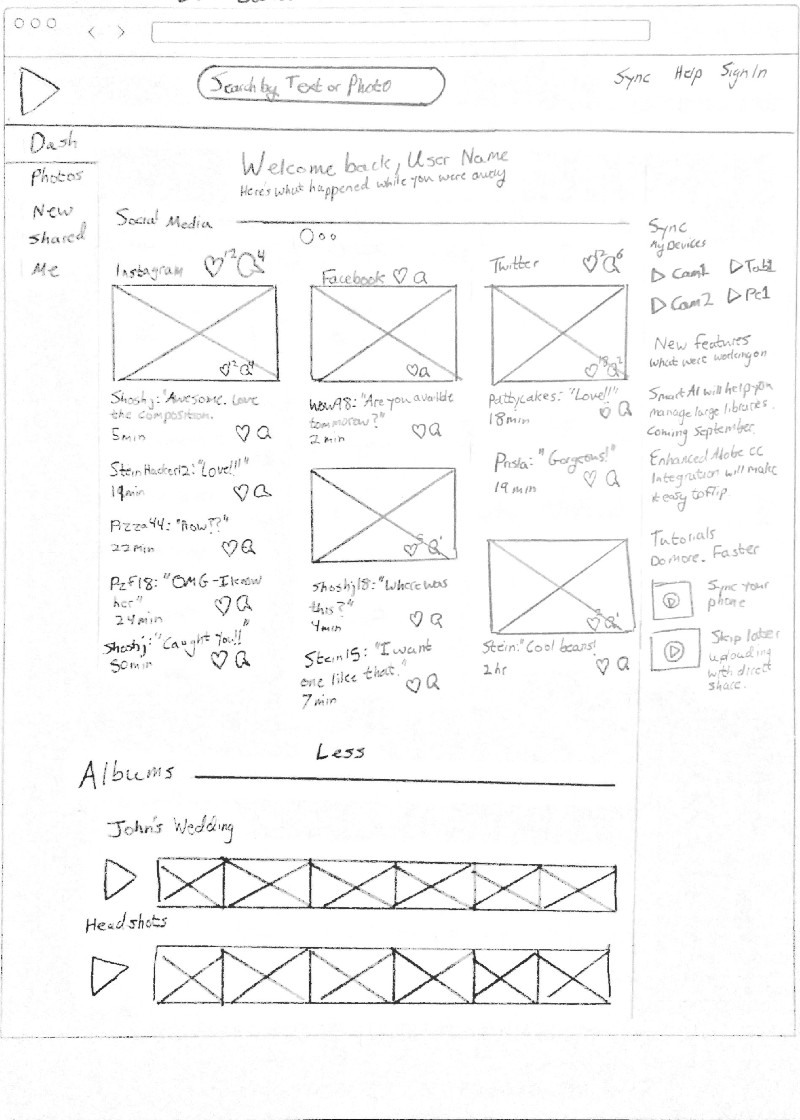 Search by Text or Photo
Sync Help Sign In
Dash
Photos
New
shared
Me
Welcome back, User Name
Here's what happened while you were away
Social Media
Instagram 12 4
12 4
Shoshj: "Awesome. Love
the composition.
5min
SteinHacker12: "Love!!!"
19min
Pizza44: "how??"
22min
PzF18: "OMG-I know
her"
24min
Shoshj: "Caught You!!"
50min
Facebook
wow98: "Are you availble
tommorow?"
2 min
Shoshj18: "Where was
this?"
4min
Stein15: "I want
one like that."
7 min
Twitter 6
18 2
Pattycakes: "Love!!"
18min
"Gorgeous!"
19 min
Stein: "Cool beans!
2hr
Less
Sync
My Devices
Cam1 Tab1
Cam2 Pc1
New features
What were working on
Smart AI will help you
manage large libraries.
Coming September.
Enhanced Adobe CC
Integration will make
it easy to flip.
Tutorials
Do more. Faster
Sync your
phone
Skip later
uploading
with direct
share.
Albums
John's Wedding
Headshots